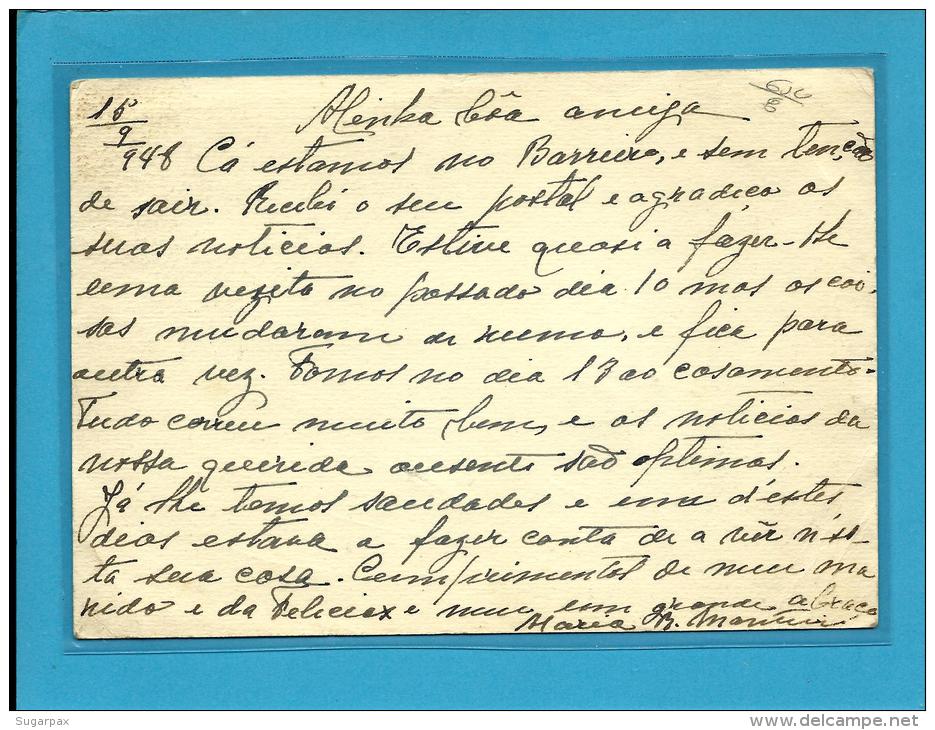 15
9
948
Minha bôa amiga
Cá estamos no Barreiro, e sem tenção
de sair. Recebi o seu postal e agradeço as
suas noticias. Estive quasi a fazer-lhe
uma vezita no passado dia 10 mas as coi-
sas mudaram de rumo, e fica para
outra vez. Fomos no dia 13 ao casamento.
Tudo correu muito bem, e as noticias da
nossa querida ausente são optimas.
Já lhe temos saudades e um d'estes
dias estava a fazer conta de a vêr n'es-
ta sua casa. Cumprimentos de meu ma
rido e da Felicia e meu um grande abraço
Maria B.
Sugarpax
www.delcampe.net